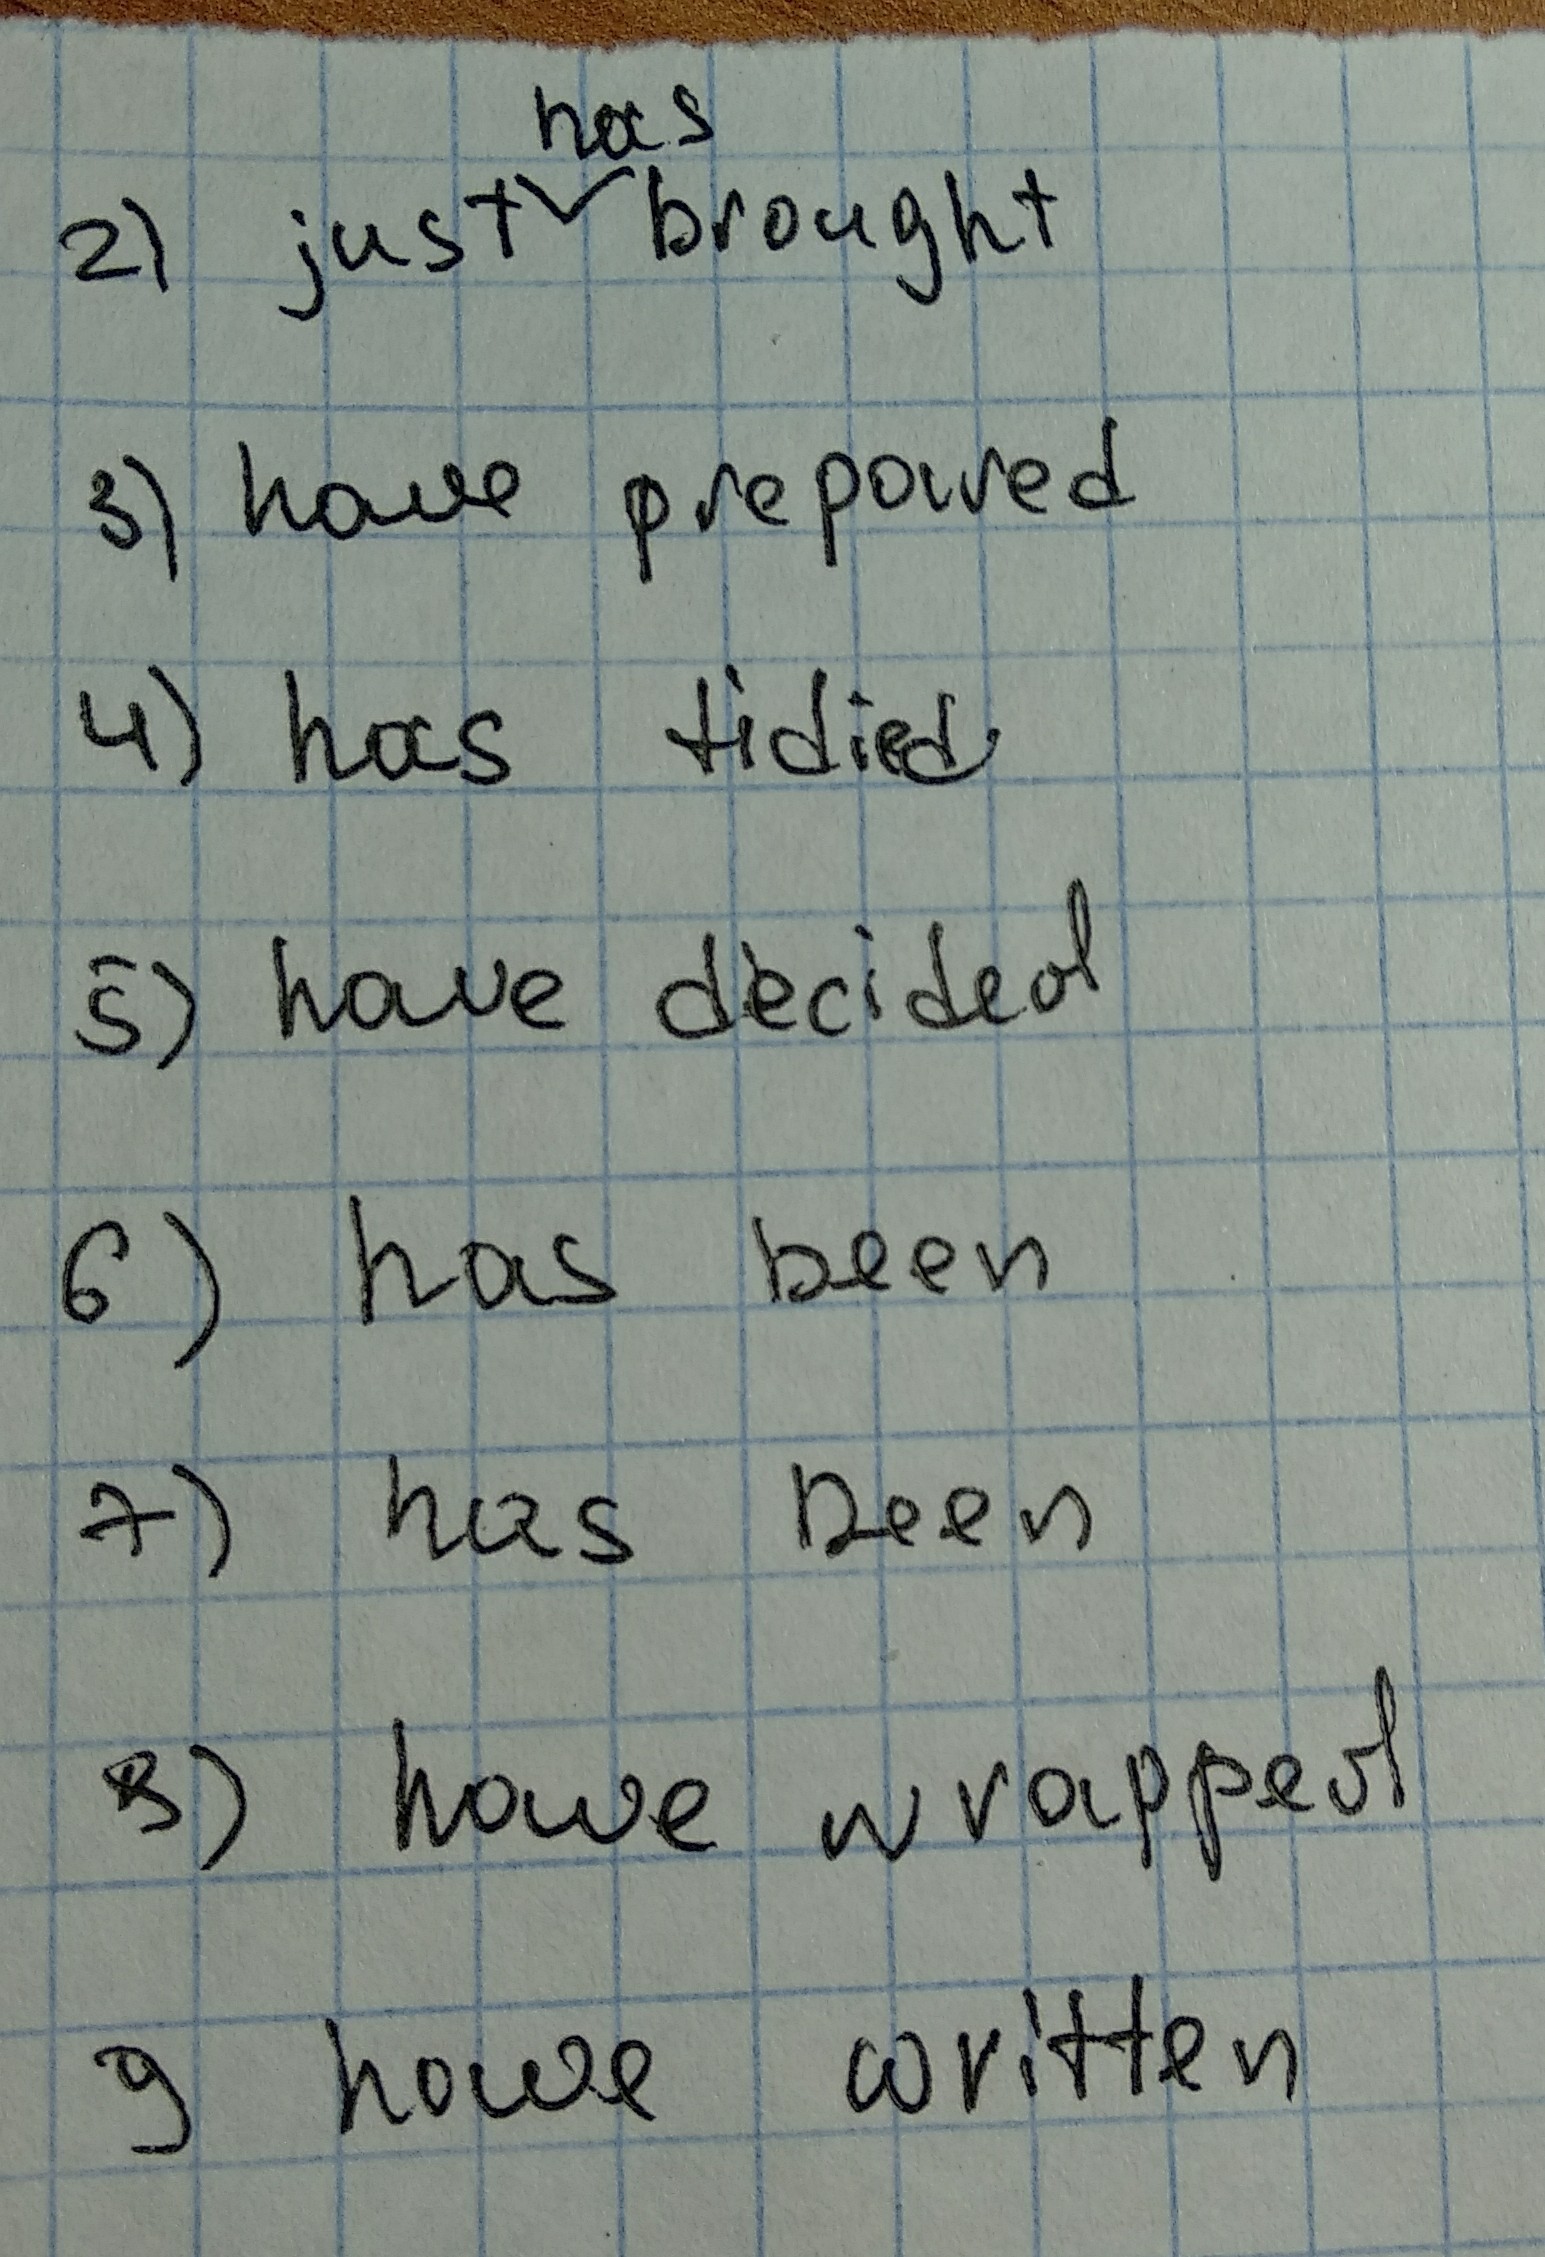 has
2) just ∨ brought
3) have prepared
4) has tidied
5) have decided
6) has been
7) has been
8) have wrapped
9 have written